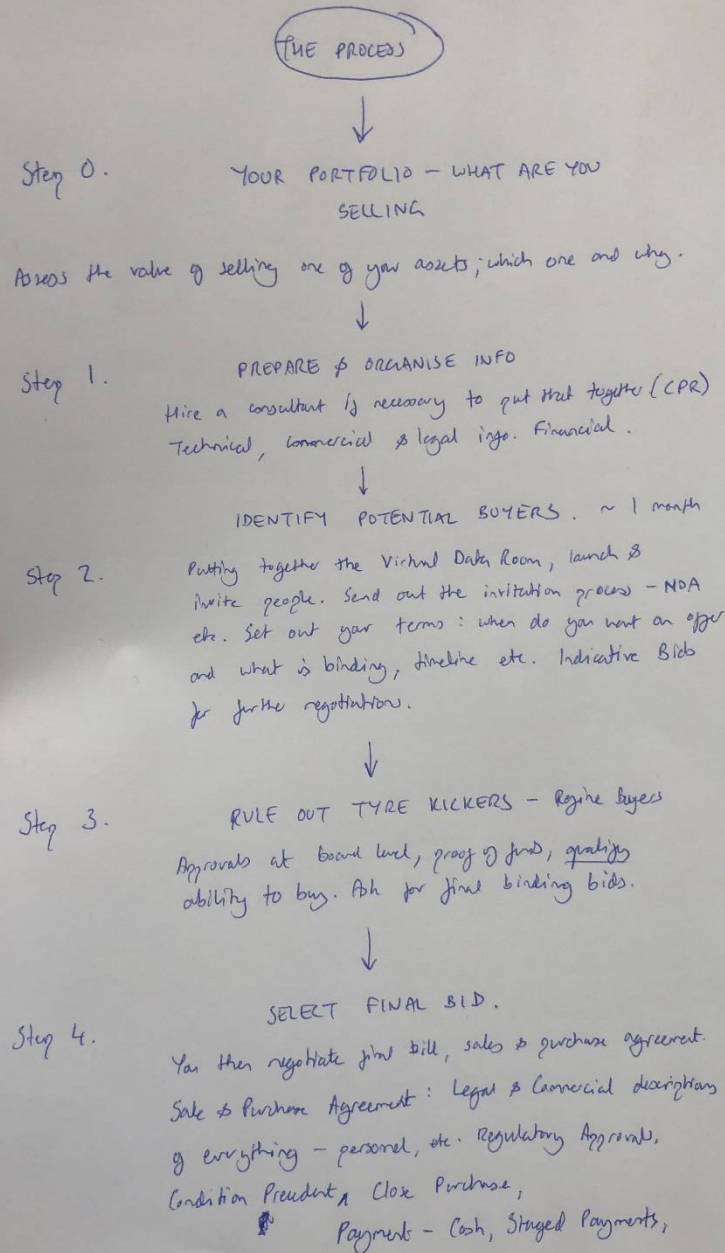 THE PROCESS
Step 0.
YOUR PORTFOLIO - WHAT ARE YOU
SELLING
Assess the value of selling one of your assets; which one and why.
Step 1.
PREPARE & ORGANISE INFO
Hire a consultant if necessary to put that together (CPR)
Technical, commercial & legal info. Financial.
IDENTIFY POTENTIAL BUYERS. ~ 1 month
Step 2.
Putting together the Virtual Data Room, launch &
invite people. Send out the invitation process - NDA
etc. Set out your terms: when do you want an offer
and what is binding, timeline etc. Indicative Bids
for further negotiation.
Step 3.
RULE OUT TYRE KICKERS - Refine Buyers
Approvals at board level, proof of funds, qualify
ability to buy. Ask for final binding bids.
SELECT FINAL BID.
Step 4.
You then negotiate final bill, sales & purchase agreement.
Sale & Purchase Agreement: Legal & Commercial descriptions
of everything - personel, etc. Regulatory Approvals,
Condition Precedent, Close Purchase,
Payment - Cash, Staged Payments,